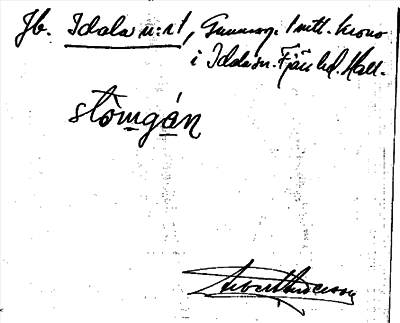 Jb. Idala n:r 1, Gunnarp. 1 mtl. krono
i Idala sn. Fjäre hd. Hall.
stòmgán